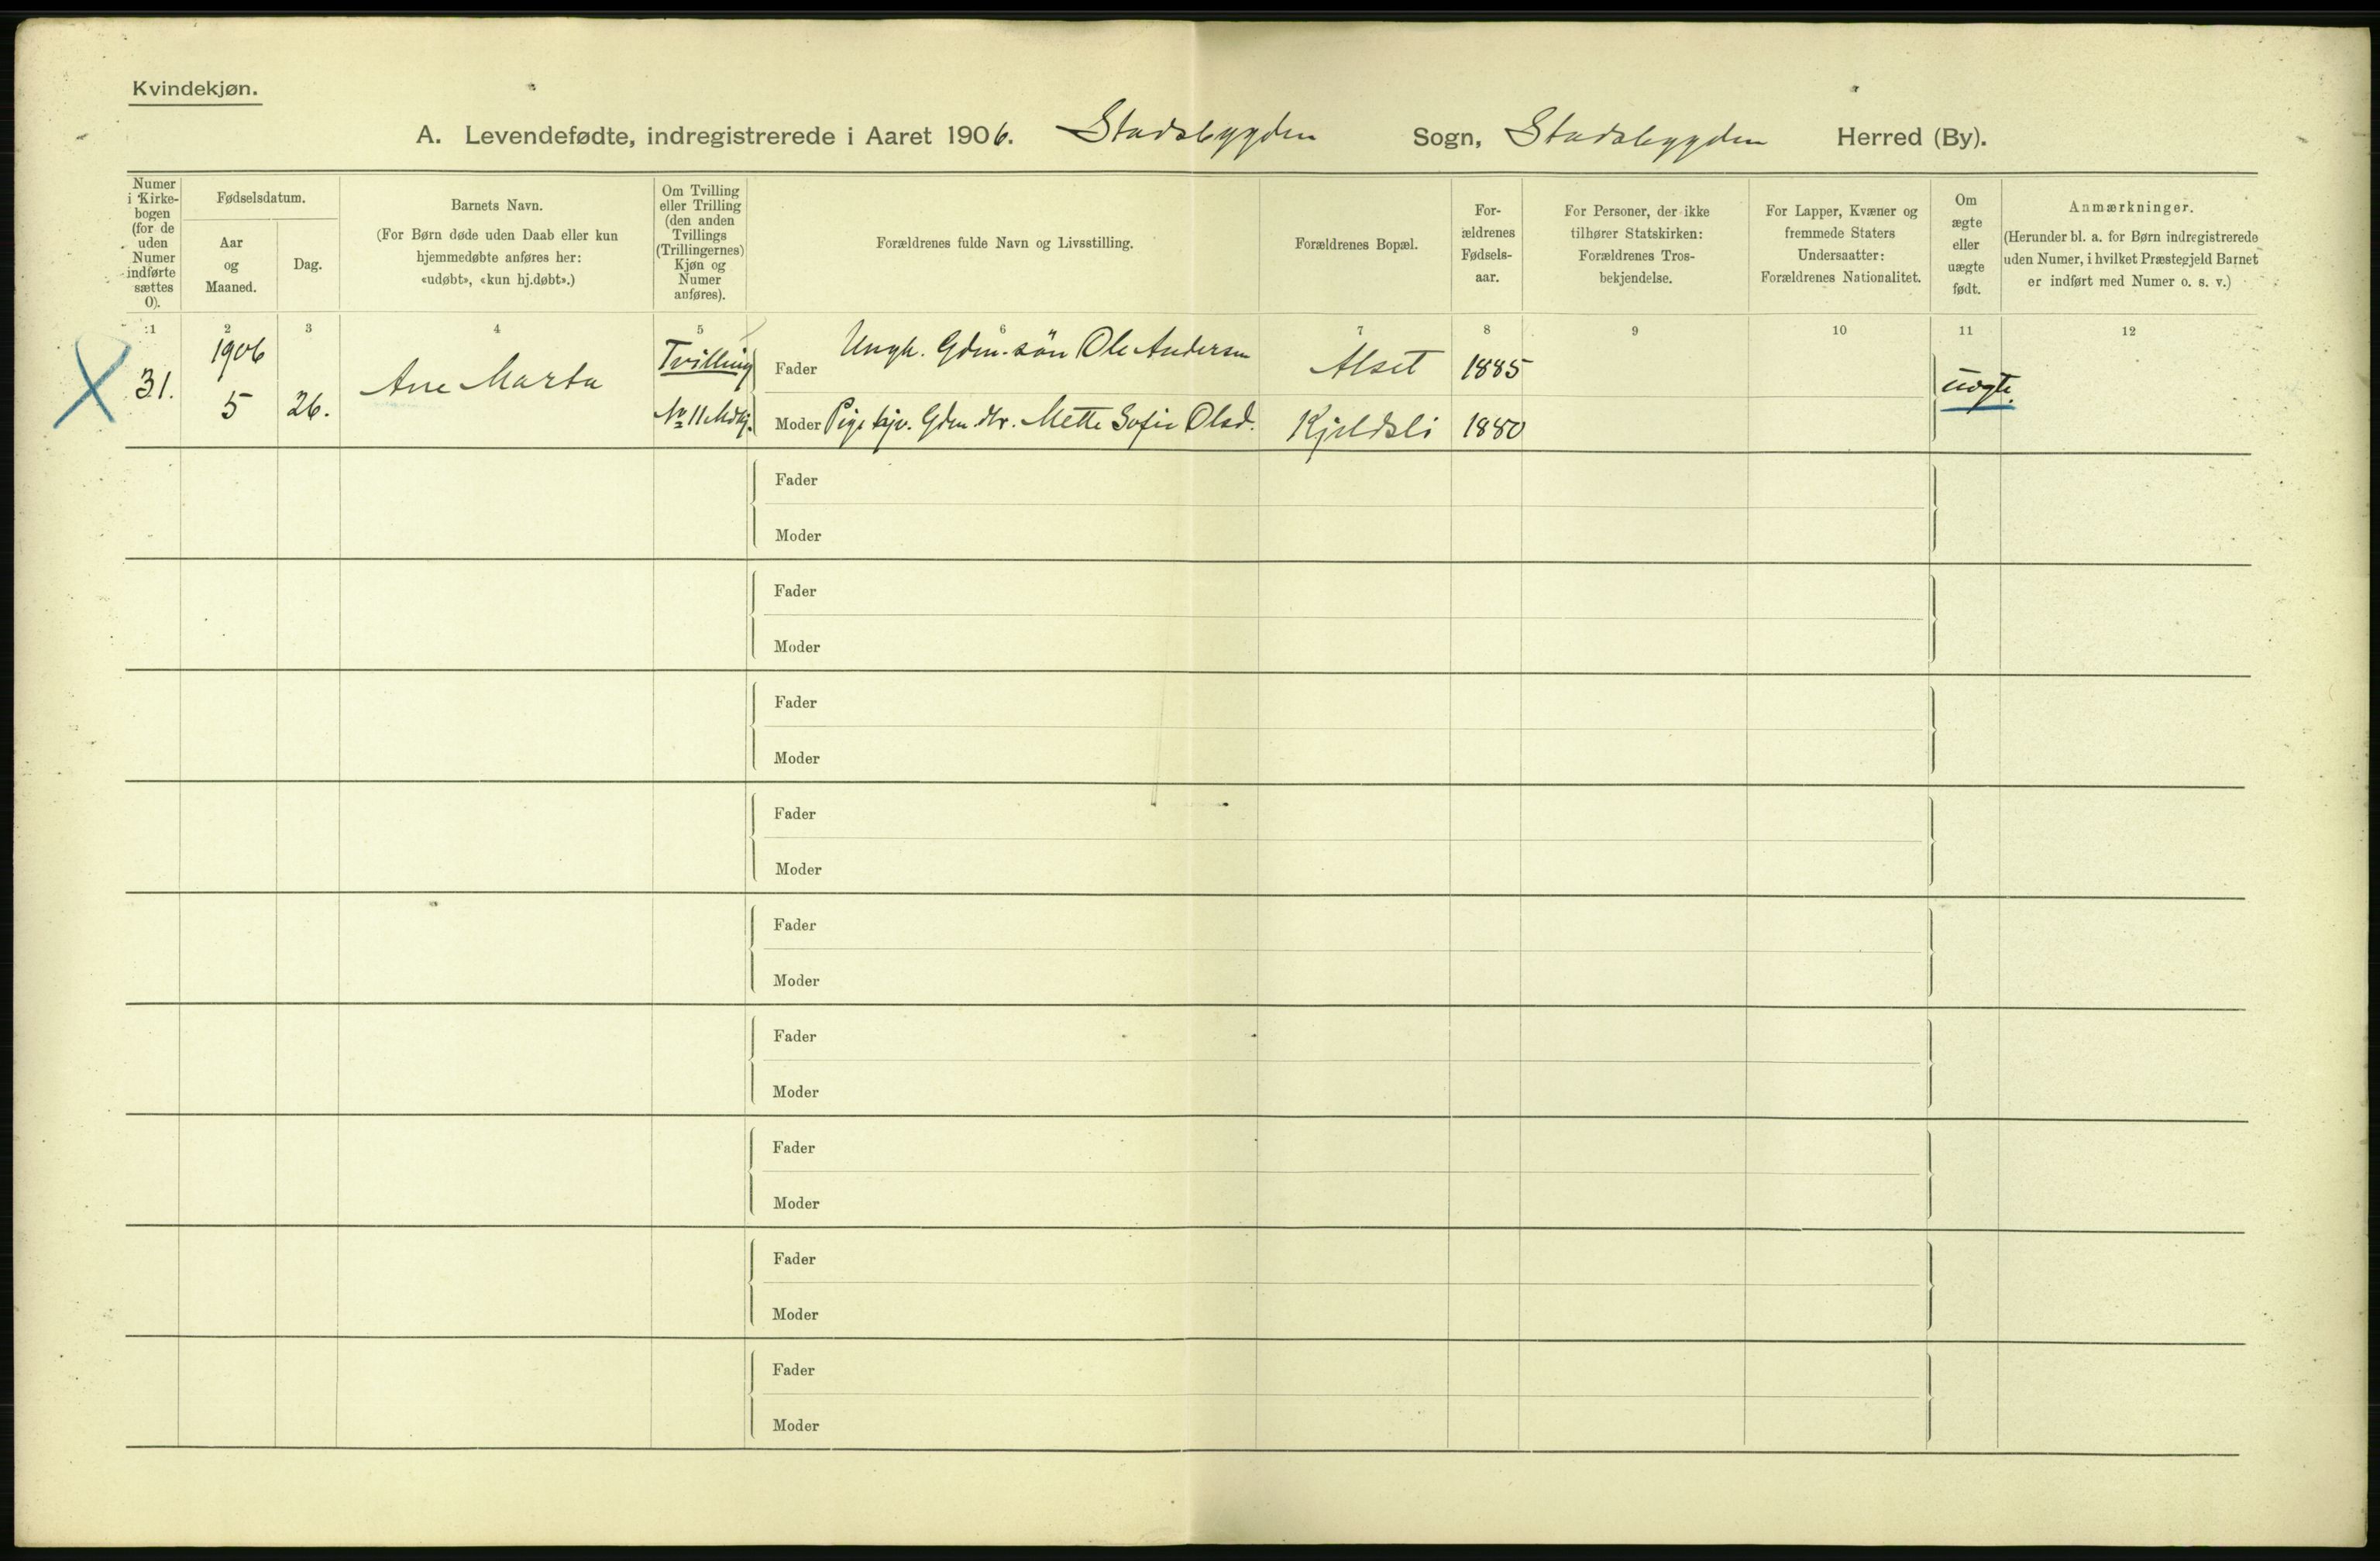 Kvindekjøn.
A. Levendefødte, indregistrerede i Aaret 1906. Stadsbygden Sogn, Stadsbygden Herred (By).
Numer
i Kirke-
bogen
(for de
uden
Numer
indførte
sættes
0).
Fødselsdatum.
Aar
og
Maaned.
Dag.
Barnets Navn.
(For Børn døde uden Daab eller kun
hjemmedøbte anføres her:
«udøbt», «kun hj.døbt».)
Om Tvilling
eller Trilling
(den anden
Tvillings
(Trillingernes)
Kjøn og
Numer
anføres).
Forældrenes fulde Navn og Livsstilling.
Forældrenes Bopæl.
For-
ældrenes
Fødsels-
aar.
For Personer, der ikke
tilhører Statskirken:
Forældrenes Tros-
bekjendelse.
For Lapper, Kvæner og
fremmede Staters
Undersaatter:
Forældrenes Nationalitet.
Om
ægte
eller
uægte
født.
Anmærkninger.
(Herunder bl. a. for Børn indregistrerede
uden Numer, i hvilket Præstegjeld Barnet
er indført med Numer o. s. v.)
1 2 3 4 5 6 7 8 9 10 11 12
31.
1906
5
26.
Ane Marta
Tvilling
No 11 Mdkj.
Fader Ungk. Gdm. søn Ole Andersen Alset 1885
Moder Pige Gdm. dtr. Mette Sofie Olsd. Kjeldsli 1880
uægte.
Fader
Moder
Fader
Moder
Fader
Moder
Fader
Moder
Fader
Moder
Fader
Moder
Fader
Moder
Fader
Moder
Fader
Moder